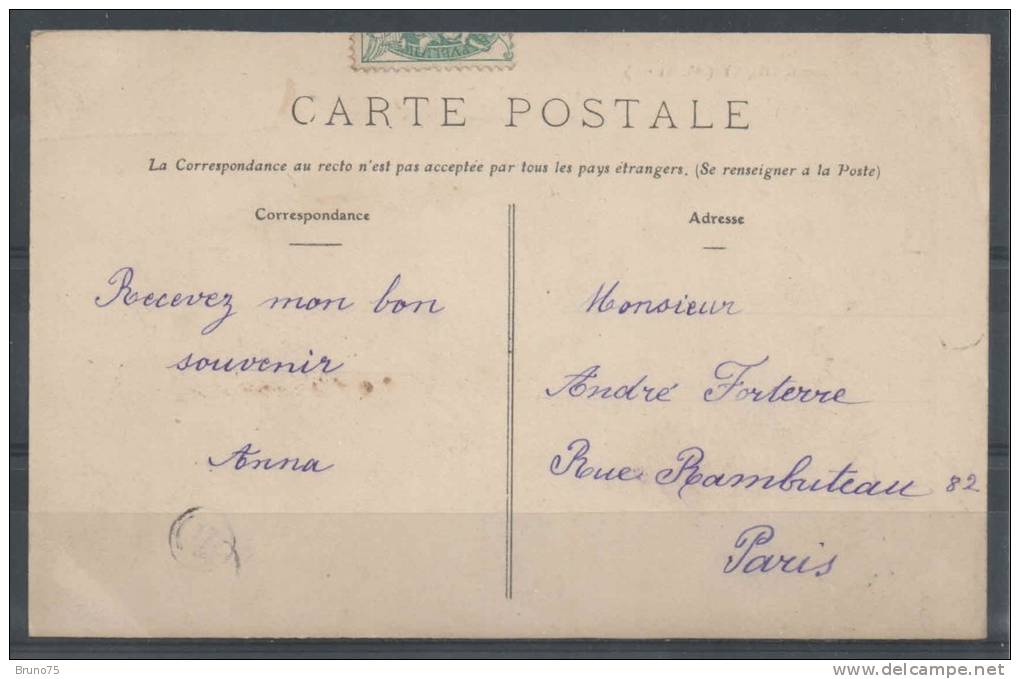 CARTE POSTALE
La Correspondance au recto n'est pas acceptée par tous les pays étrangers. (Se renseigner a la Poste)
Correspondance
Adresse
Recevez mon bon
souvenir
Anna
Monsieur
André Forterre
Rue Rambuteau 82
Paris
Bruno75
http://www.delcampe.net